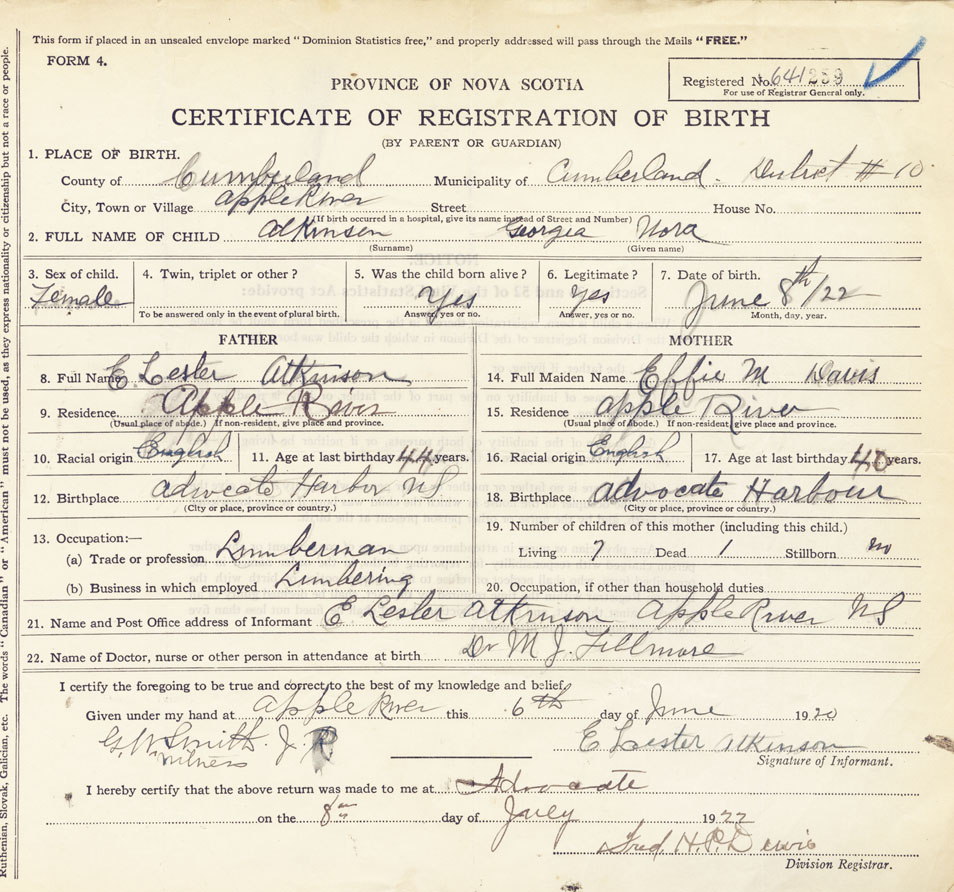 This form if placed in an unsealed envelope marked "Dominion Statistics free," and properly addressed will pass through the Mails "FREE."
FORM 4.
Registered No. 641259
For use of Registrar General only.
PROVINCE OF NOVA SCOTIA
CERTIFICATE OF REGISTRATION OF BIRTH
(BY PARENT OR GUARDIAN)
1. PLACE OF BIRTH.
County of Cumberland Municipality of Cumberland. District # 10
City, Town or Village Apple River Street House No.
(If birth occurred in a hospital, give its name instead of Street and Number)
2. FULL NAME OF CHILD Atkinson Georgia Nora
(Surname) (Given name)
3. Sex of child. 4. Twin, triplet or other? 5. Was the child born alive? 6. Legitimate? 7. Date of birth.
Female Yes Yes June 8th/22
To be answered only in the event of plural birth. Answer, yes or no. Answer, yes or no. Month, day, year.
FATHER MOTHER
8. Full Name E Lester Atkinson 14. Full Maiden Name Effie M Davis
9. Residence Apple River 15. Residence Apple River
(Usual place of abode.) If non-resident, give place and province. (Usual place of abode.) If non-resident, give place and province.
10. Racial origin English 11. Age at last birthday 44 years. 16. Racial origin English 17. Age at last birthday 40 years.
12. Birthplace Advocate Harbor NS 18. Birthplace Advocate Harbour
(City or place, province or country.) (City or place, province or country.)
13. Occupation:— 19. Number of children of this mother (including this child.)
(a) Trade or profession Lumberman Living 7 Dead 1 Stillborn no
(b) Business in which employed Lumbering 20. Occupation, if other than household duties
21. Name and Post Office address of Informant E Lester Atkinson Apple River NS
22. Name of Doctor, nurse or other person in attendance at birth Dr M. J. Fillmore
I certify the foregoing to be true and correct to the best of my knowledge and belief.
Given under my hand at Apple River this 6th day of June 1920
G. W. Smith. J. P. E Lester Atkinson
Witness Signature of Informant.
I hereby certify that the above return was made to me at Advocate
on the 8th day of July 1922
Fred. H. P. Dewis
Division Registrar.
Ruthenian, Slovak, Galician, etc. The words "Canadian" or "American" must not be used, as they express nationality or citizenship but not a race or people.